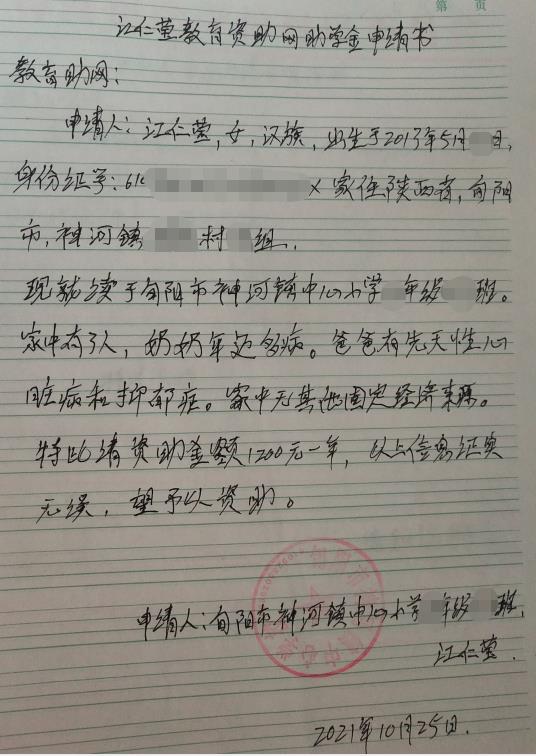 第 页
江仁莹教育资助网助学金申请书
教育助网：
申请人：江仁莹，女，汉族，出生于2013年5月 日，
身份证号：61 X 家住陕西省，旬阳
市，神河镇 村 组．
现就读于旬阳市神河镇中心小学 年级 班。
家中有3人，奶奶年迈多病。爸爸有先天性心
脏病和抑郁症。家中无其他固定经济来源。
特此请资助金额1200元一年，以上信息证实
无误，望予以资助。
申请人：旬阳市神河镇中心小学 年级 班，
江仁莹．
2021年10月25日．